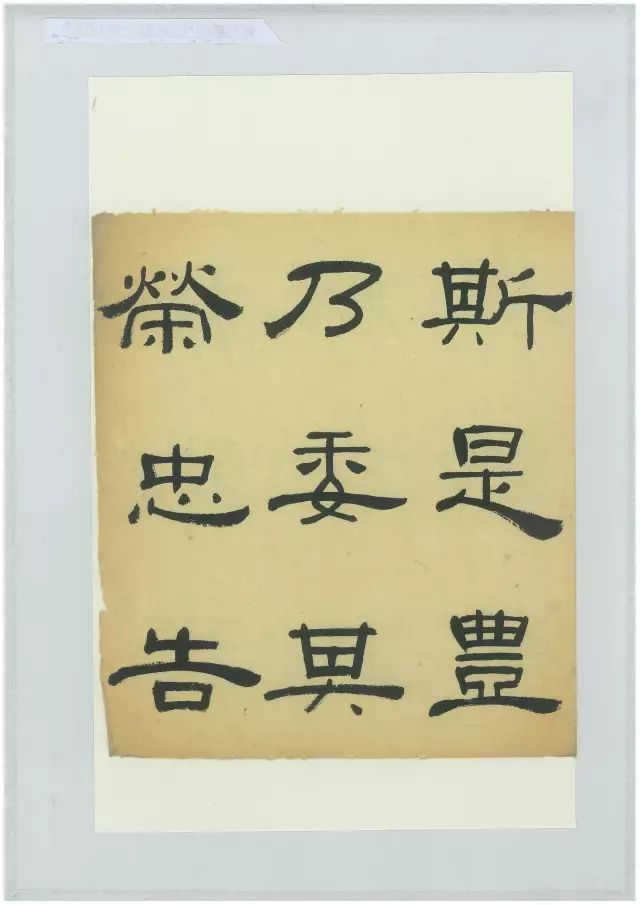 斯是豊
乃委其
榮忠告